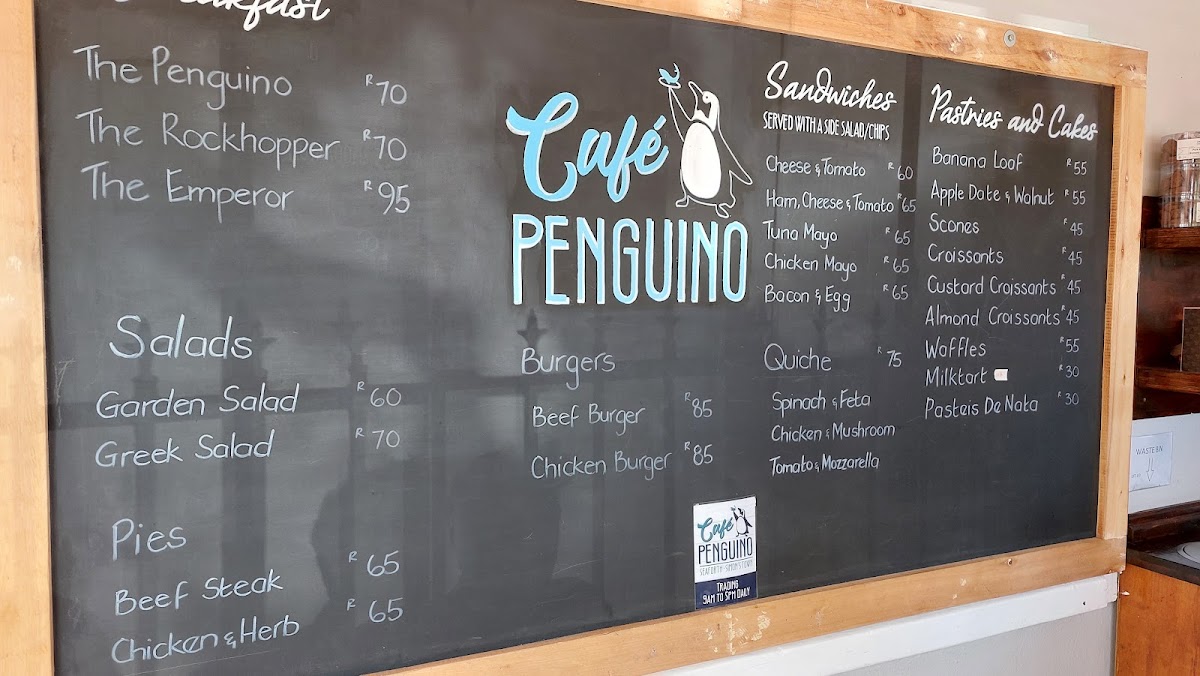 Breakfast
The Penguino R70
The Rockhopper R70
The Emperor R95
Salads
Garden Salad R60
Greek Salad R70
Pies
Beef Steak R65
Chicken & Herb R65
Café
PENGUINO
Burgers
Beef Burger R85
Chicken Burger R85
Café
PENGUINO
SEAFORTH SIMON'S TOWN
TRADING
9AM TO 5PM DAILY
Sandwiches
SERVED WITH A SIDE SALAD/CHIPS
Cheese & Tomato R60
Ham, Cheese & Tomato R65
Tuna Mayo R65
Chicken Mayo R65
Bacon & Egg R65
Quiche R75
Spinach & Feta
Chicken & Mushroom
Tomato & Mozzarella
Pastries and Cakes
Banana Loaf R55
Apple Date & Walnut R55
Scones R45
Croissants R45
Custard Croissants R45
Almond Croissants R45
Waffles R55
Milktart R30
Pasteis De Nata R30
WASTE BIN